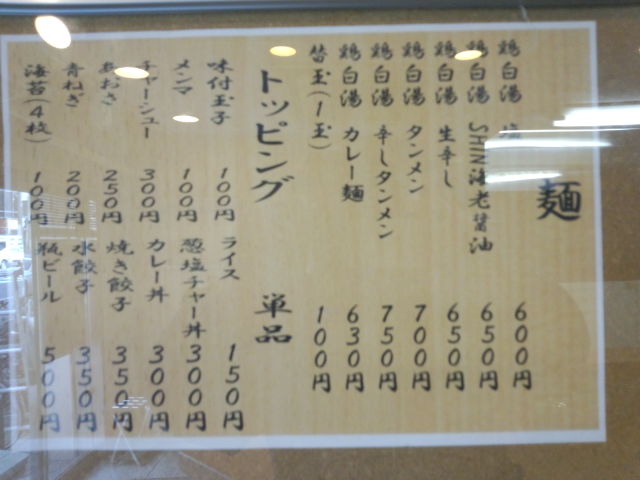 麺
鶏白湯 塩 600円
鶏白湯 SHIN海老醤油 650円
鶏白湯 生辛し 650円
鶏白湯 タンメン 700円
鶏白湯 辛しタンメン 750円
鶏白湯 カレー麺 630円
替玉(1玉) 100円
トッピング
味付玉子 100円
メンマ 100円
チャーシュー 300円
あおさ 250円
青ねぎ 200円
海苔(4枚) 100円
単品
ライス 150円
葱塩チャー丼 300円
カレー丼 300円
焼き餃子 350円
水餃子 350円
瓶ビール 500円